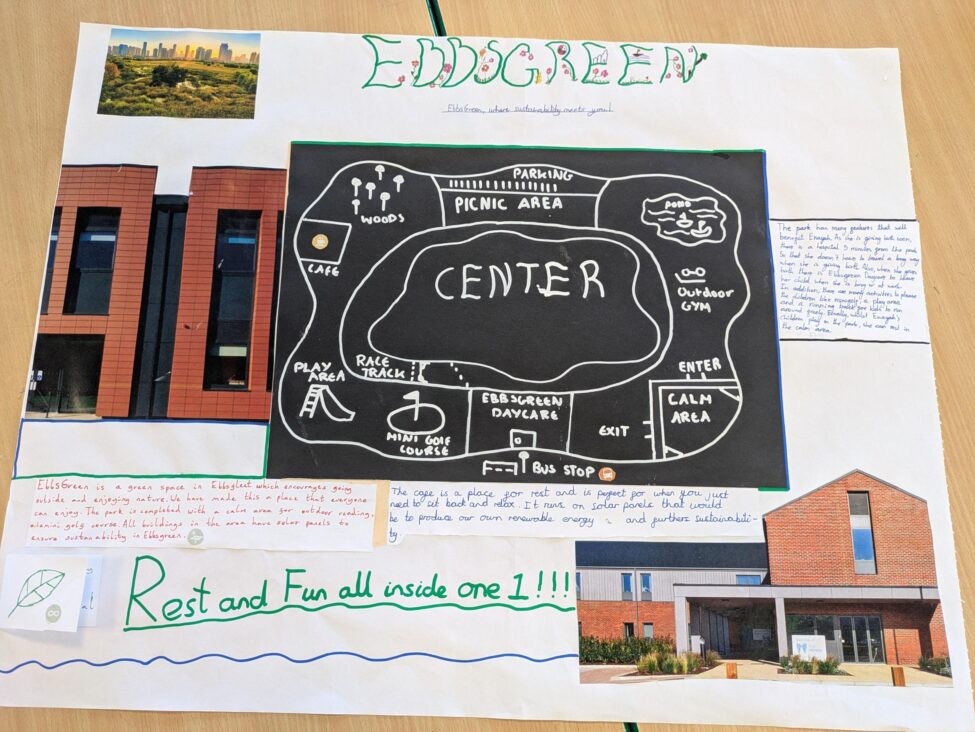 EBBSGREEN
EbbsGreen, where sustainability meets you!
PARKING
PICNIC AREA
WOODS
POND
CAFE
CENTER
Outdoor
GYM
RACE
TRACK
PLAY
AREA
ENTER
MINI GOLF
COURSE
EBBSGREEN
DAYCARE
CALM
AREA
EXIT
BUS STOP
The park has many features that will
benefit Enayah. As she is giving birth soon,
there is a hospital 5 minutes from the park
so that she doesn't have to travel a long way
when she is giving birth. Also, when she gives
birth there is Ebbsgreen Daycare to leave
her child when she is busy or at work.
In addition, there are many activities to please
the children like minigolf, a play area
and a running track for kids to run
around freely. Finally, whilst Enayah's
children play in the park, she can rest in
the calm area.
EbbsGreen is a green space in Ebbsfleet which encourages going
outside and enjoying nature. We have made this a place that everyone
can enjoy. The park is completed with a calm area for outdoor reading,
a mini golf course. All buildings in the area have solar panels to
ensure sustainability in Ebbsgreen.
The cafe is a place for rest and is perfect for when you just
need to sit back and relax. It runs on solar panels that would
be to produce our own renewable energy and furthers sustainabili-
ty
Rest and Fun all inside one 1!!!